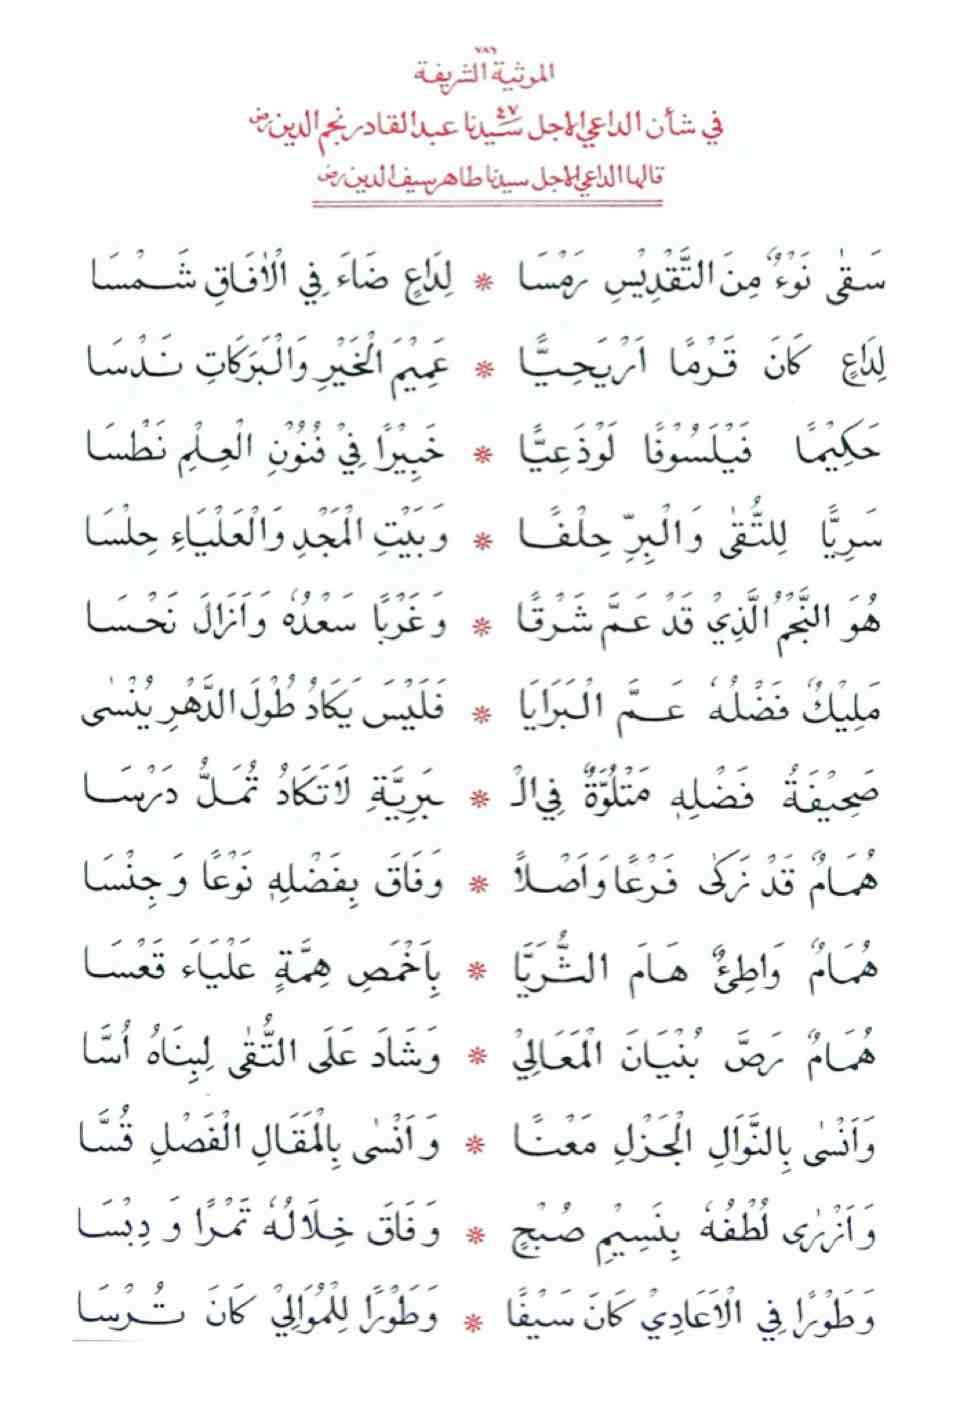 ٧٨٦
المرثية الشريفة
في شأن الداعي الاجل ٤٧ سيدنا عبد القادر نجم الدين رض
قالها الداعي الاجل سيدنا طاهر سيف الدين رض
سَقٰى نَوْءٌ مِنَ التَّقْدِيْسِ رَمْسَا * لِدَاعٍ ضَاءَ فِي الْاٰفَاقِ شَمْسَا
لِدَاعٍ كَانَ قَرْمًا اَرْيَحِيًّا * عَمِيْمَ الْخَيْرِ وَالْبَرَكَاتِ نَدْسَا
حَكِيْمًا فَيْلَسُوْفًا لَوْذَعِيًّا * خَبِيْرًا فِيْ فُنُوْنِ الْعِلْمِ نَطْسَا
سَرِيًّا لِلتُّقٰى وَالْبِرِّ حِلْفًا * وَبَيْتِ الْمَجْدِ وَالْعَلْيَاءِ حِلْسَا
هُوَ النَّجْمُ الَّذِيْ قَدْ عَمَّ شَرْقًا * وَغَرْبًا سَعْدُهٗ وَاَزَالَ نَحْسَا
مَلِيْكٌ فَضْلُهٗ عَمَّ الْبَرَايَا * فَلَيْسَ يَكَادُ طُوْلَ الدَّهْرِ يُنْسٰى
صَحِيْفَةُ فَضْلِهٖ مَتْلُوَّةٌ فِي الْـ * ـبَرِيَّةِ لَاتَكَادُ تُمَلُّ دَرْسَا
هُمَامٌ قَدْ زَكٰى فَرْعًا وَاَصْلًا * وَفَاقَ بِفَضْلِهٖ نَوْعًا وَجِنْسَا
هُمَامٌ وَاطِئٌ هَامَ الثُّرَيَّا * بِاَخْمَصِ هِمَّةٍ عَلْيَاءَ قَعْسَا
هُمَامٌ رَصَّ بُنْيَانَ الْمَعَالِيْ * وَشَادَ عَلَى التُّقٰى لِبِنَاهُ اُسَّا
وَاَنْسٰى بِالنَّوَالِ الْجَزْلِ مَعْنًا * وَاَنْسٰى بِالْمَقَالِ الْفَصْلِ قُسَّا
وَاَزْرٰى لُطْفُهٗ بِنَسِيْمِ صُبْحٍ * وَفَاقَ خِلَالُهٗ تَمْرًا وَدِبْسَا
وَطَوْرًا فِي الْاَعَادِيْ كَانَ سَيْفًا * وَطَوْرًا لِلْمُوَالِيْ كَانَ تُرْسَا